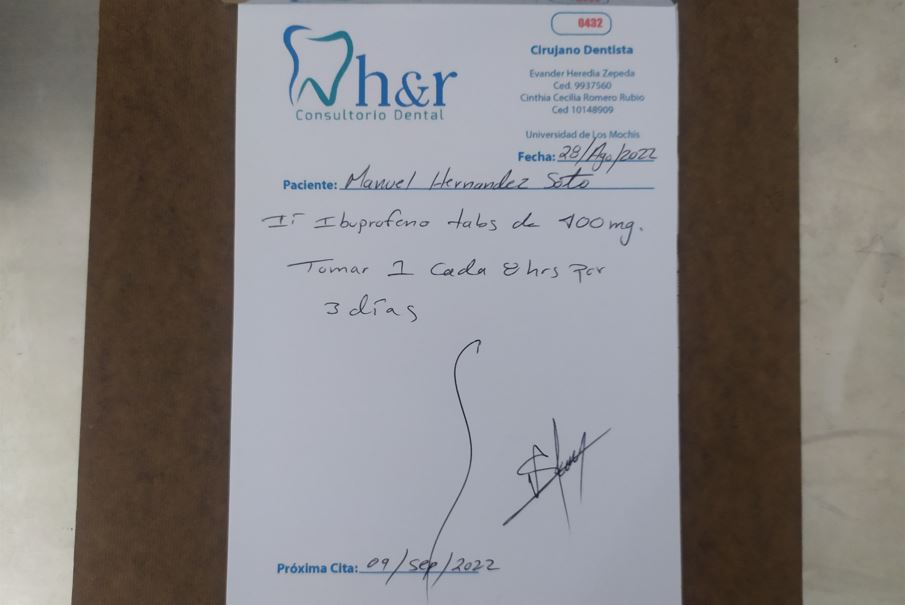 0432
h&r
Consultorio Dental
Cirujano Dentista
Evander Heredia Zepeda
Ced. 9937560
Cinthia Cecilia Romero Rubio
Ced 10148909
Universidad de Los Mochis
Fecha: 28/Ago/2022
Paciente: Manuel Hernandez Soto
Ibuprofeno tabs de 400mg.
Tomar 1 cada 8 hrs por
3 días
Próxima Cita: 09/sep/2022